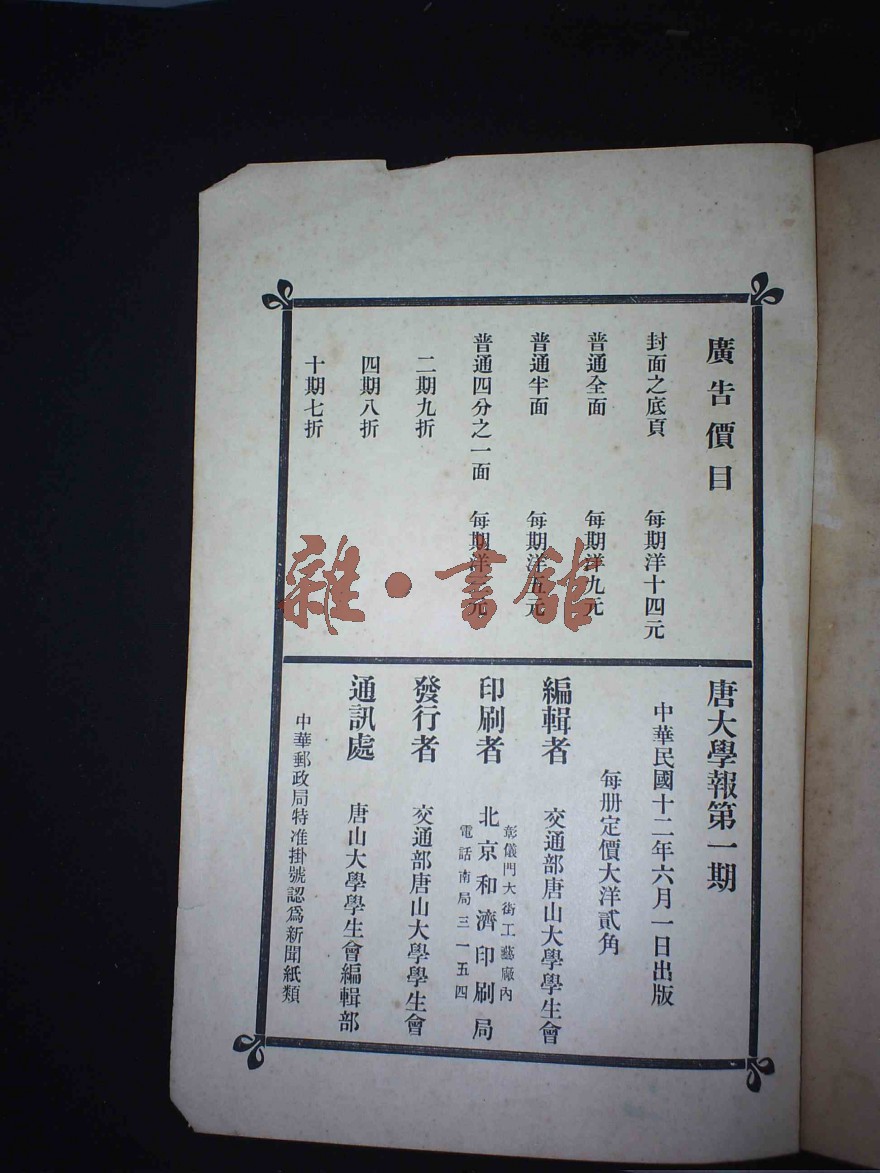 廣告價目
封面之底頁 每期洋十四元
普通全面 每期洋九元
普通半面 每期洋五元
普通四分之一面 每期洋三元
二期九折
四期八折
十期七折
唐大學報第一期
中華民國十二年六月一日出版
每册定價大洋貳角
編輯者 交通部唐山大學學生會
彰儀門大街工藝廠內
印刷者 北京和濟印刷局
電話南局三一五四
發行者 交通部唐山大學學生會
通訊處 唐山大學學生會編輯部
中華郵政局特准掛號認爲新聞紙類
雜·書館